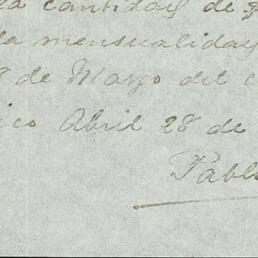 la cantidad de
la mensualidad
de Marzo del c
ico Abril 28 de
Pabl